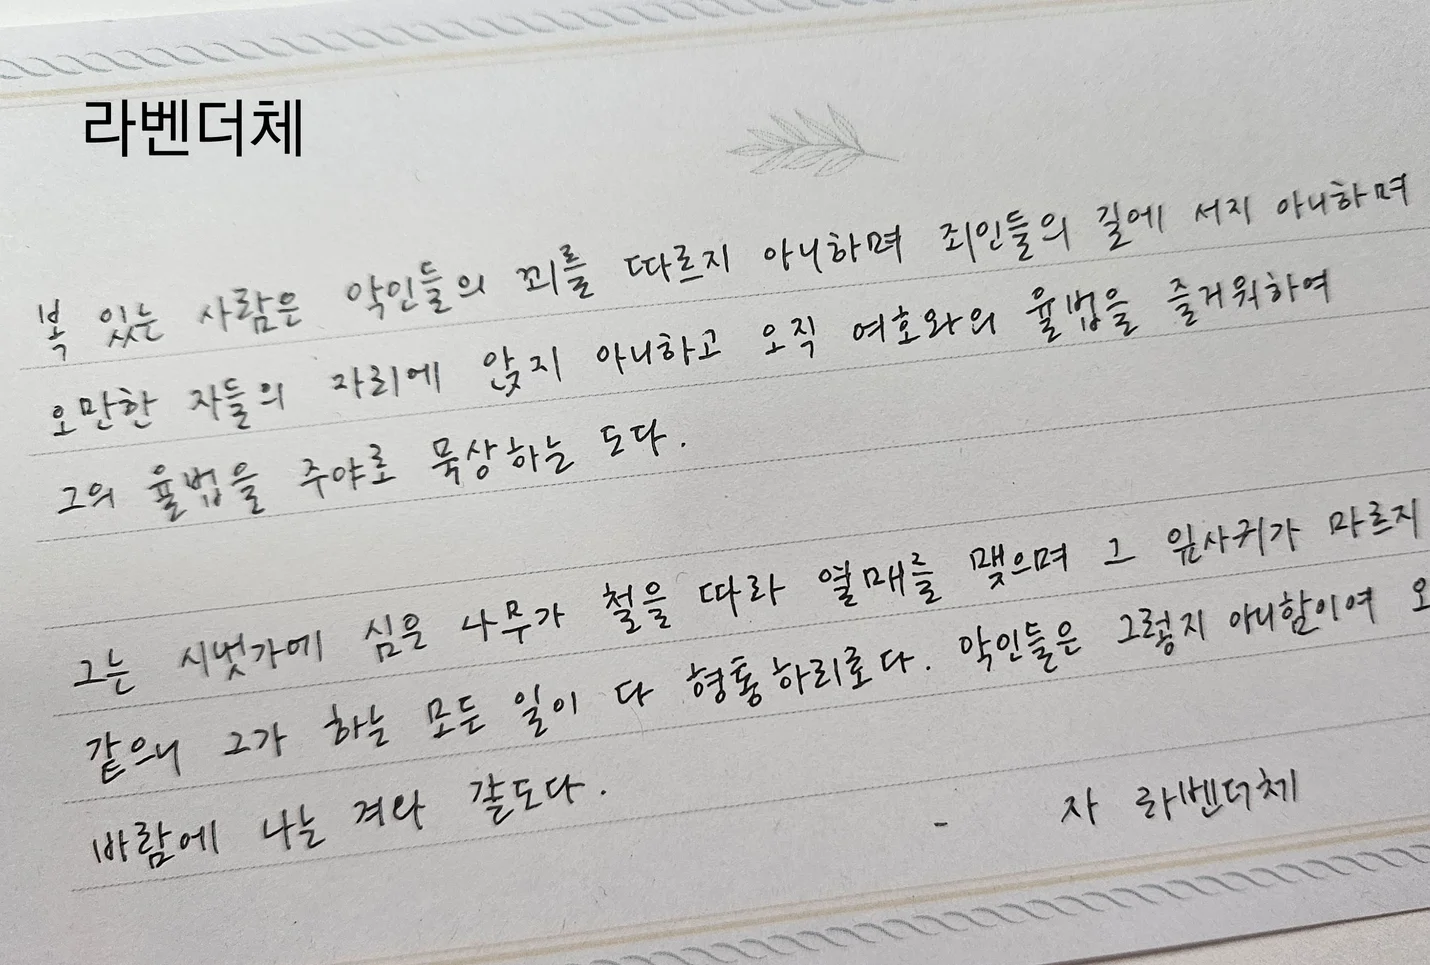 라벤더체
복 있는 사람은 악인들의 꾀를 따르지 아니하며 죄인들의 길에 서지 아니하며
오만한 자들의 자리에 앉지 아니하고 오직 여호와의 율법을 즐거워하여
그의 율법을 주야로 묵상하는 도다.
그는 시냇가에 심은 나무가 철을 따라 열매를 맺으며 그 잎사귀가 마르지
같으니 그가 하는 모든 일이 다 형통하리로다. 악인들은 그렇지 아니함이여 오
바람에 나는 겨와 같도다.
- 자 라벤더체